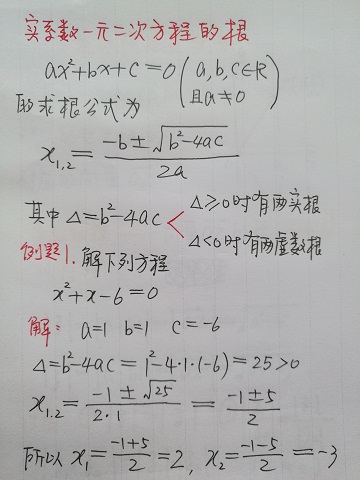 实系数一元二次方程的根
ax²+bx+c=0(a,b,c∈R 且a≠0)
的求根公式为
x₁,₂=(-b±√(b²-4ac))/(2a)
其中Δ=b²-4ac < Δ≥0时有两实根
Δ<0时有两虚数根
例题1.解下列方程
x²+x-6=0
解: a=1 b=1 c=-6
Δ=b²-4ac=1²-4·1·(-6)=25>0
x₁,₂=(-1±√25)/(2·1)=(-1±5)/2
所以 x₁=(-1+5)/2=2, x₂=(-1-5)/2=-3